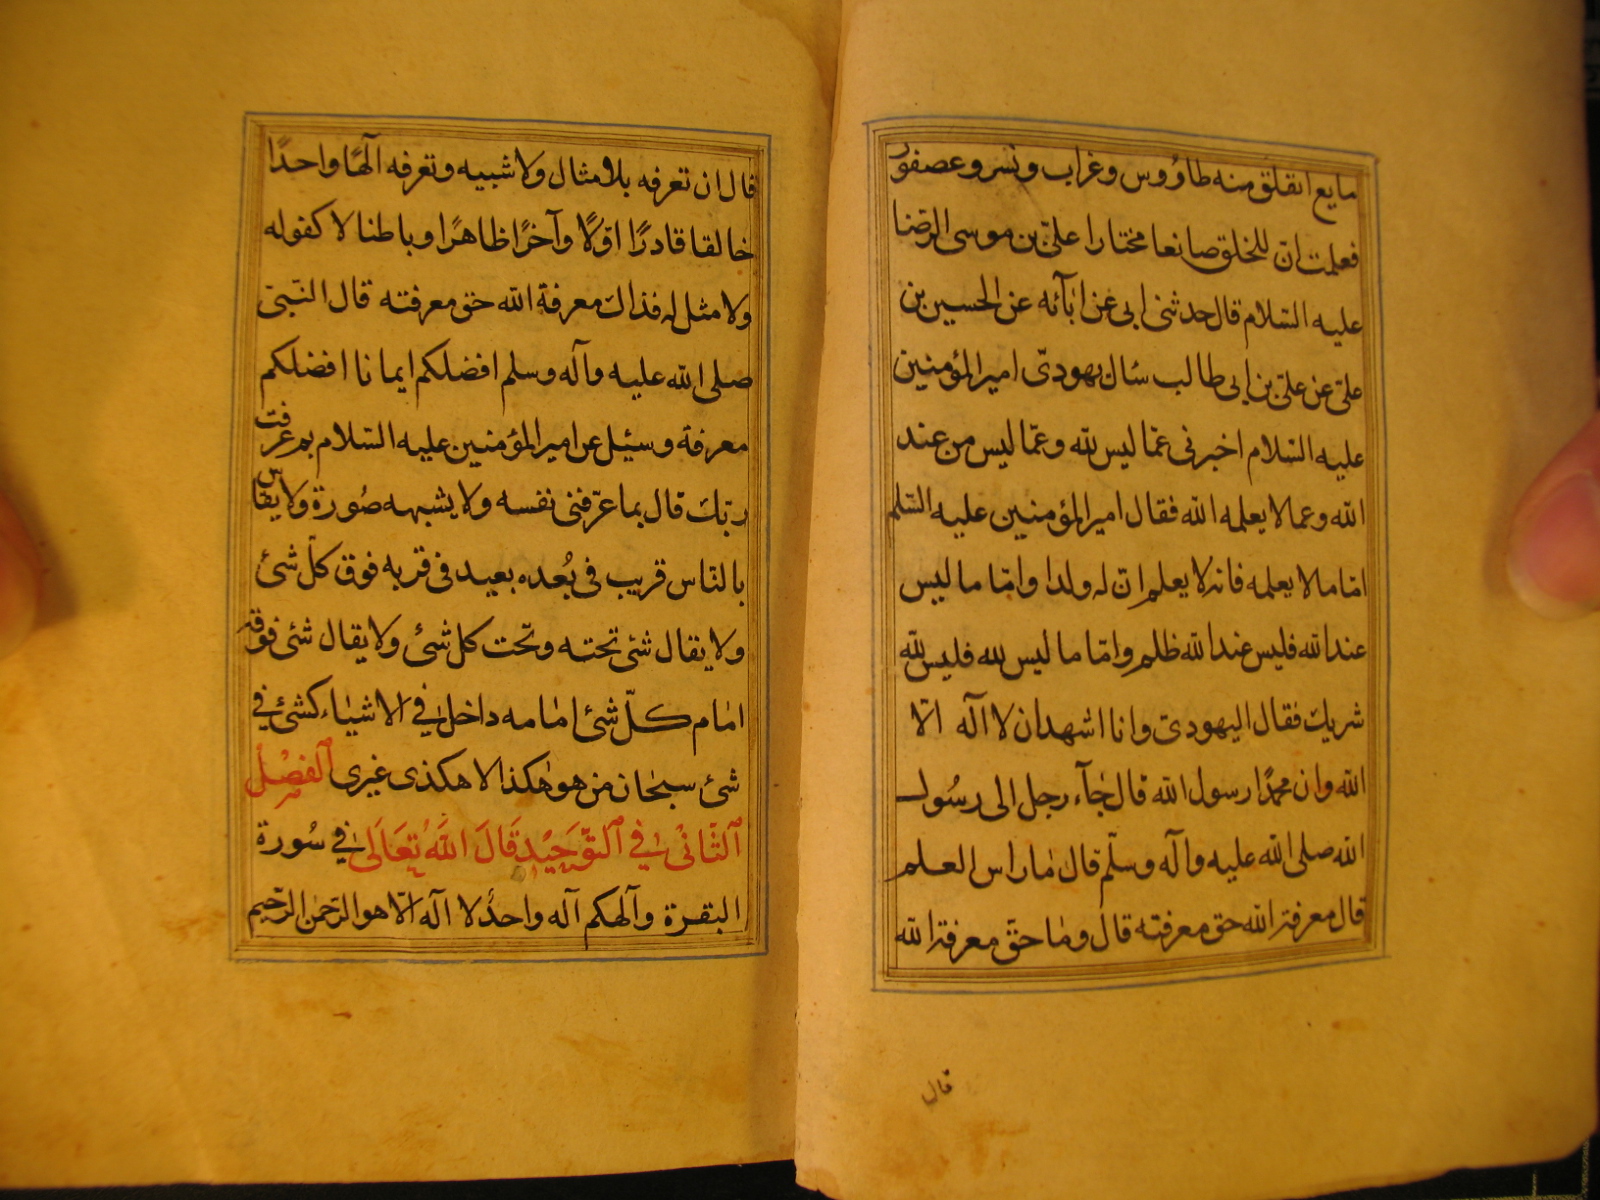 مايع انفلق منه طاووس وغراب ونسر وعصفور
فعلمت ان للخلق صانعا مختارا علىّ بن موسى الرّضا
عليه السّلام قال حدثنى ابى عن ابآئه عن الحسين بن
علىّ عن علىّ بن ابى طالب سُال يهودىّ امير المؤمنين
عليه السّلام اخبرنى عمّا ليس لله وعمّا ليس من عند
الله وعما لا يعلمه الله فقال امير المؤمنين عليه السّلم
امّا ما لا يعلمه فانه لا يعلم انّ له ولدا وامّا ما ليس
عند الله فليس عند الله ظلم وامّا ما ليس لله فليس لله
شريك فقال اليهودى وانا اشهد ان لا اله الّا
الله وان محمدًا رسول الله قال جآء رجل الى رسُول
الله صلى الله عليه وآله وسلّم قال ما راس العلم
قال معرفة الله حق معرفته قال وما حقّ معرفة الله
قال
قال ان تعرفه بلا مثال ولا شبيه وتعرفه الٰهًا واحدًا
خالقا قادرًا اوّلًا وآخرًا ظاهرًا وباطنا لا كفو له
ولا مثل له فذاك معرفة الله حق معرفته قال النّبىّ
صلى الله عليه وآله وسلم افضلكم ايمانا افضلكم
معرفة وسئل عن امير المؤمنين عليه السّلام بم عرفت
ربّك قال بما عرّفنى نفسه ولا يشبهه صُورة ولا يقاس
بالنّاس قريب فى بُعده بعيد فى قربه فوق كلّ شئ
ولا يقال شئ تحته وتحت كل شئ ولا يقال شئ فوقه
امام كلّ شئ امامه داخل فى الاشياء كشئ فى
شئ سبحان من هو هكذا لا هكذى غيرى الفصل
الثّانى فى التّوحيد قال الله تعالى فى سُورة
البقرة وآلهكم اله واحدٌ لا اله الّا هو الرّحمن الرّحيم